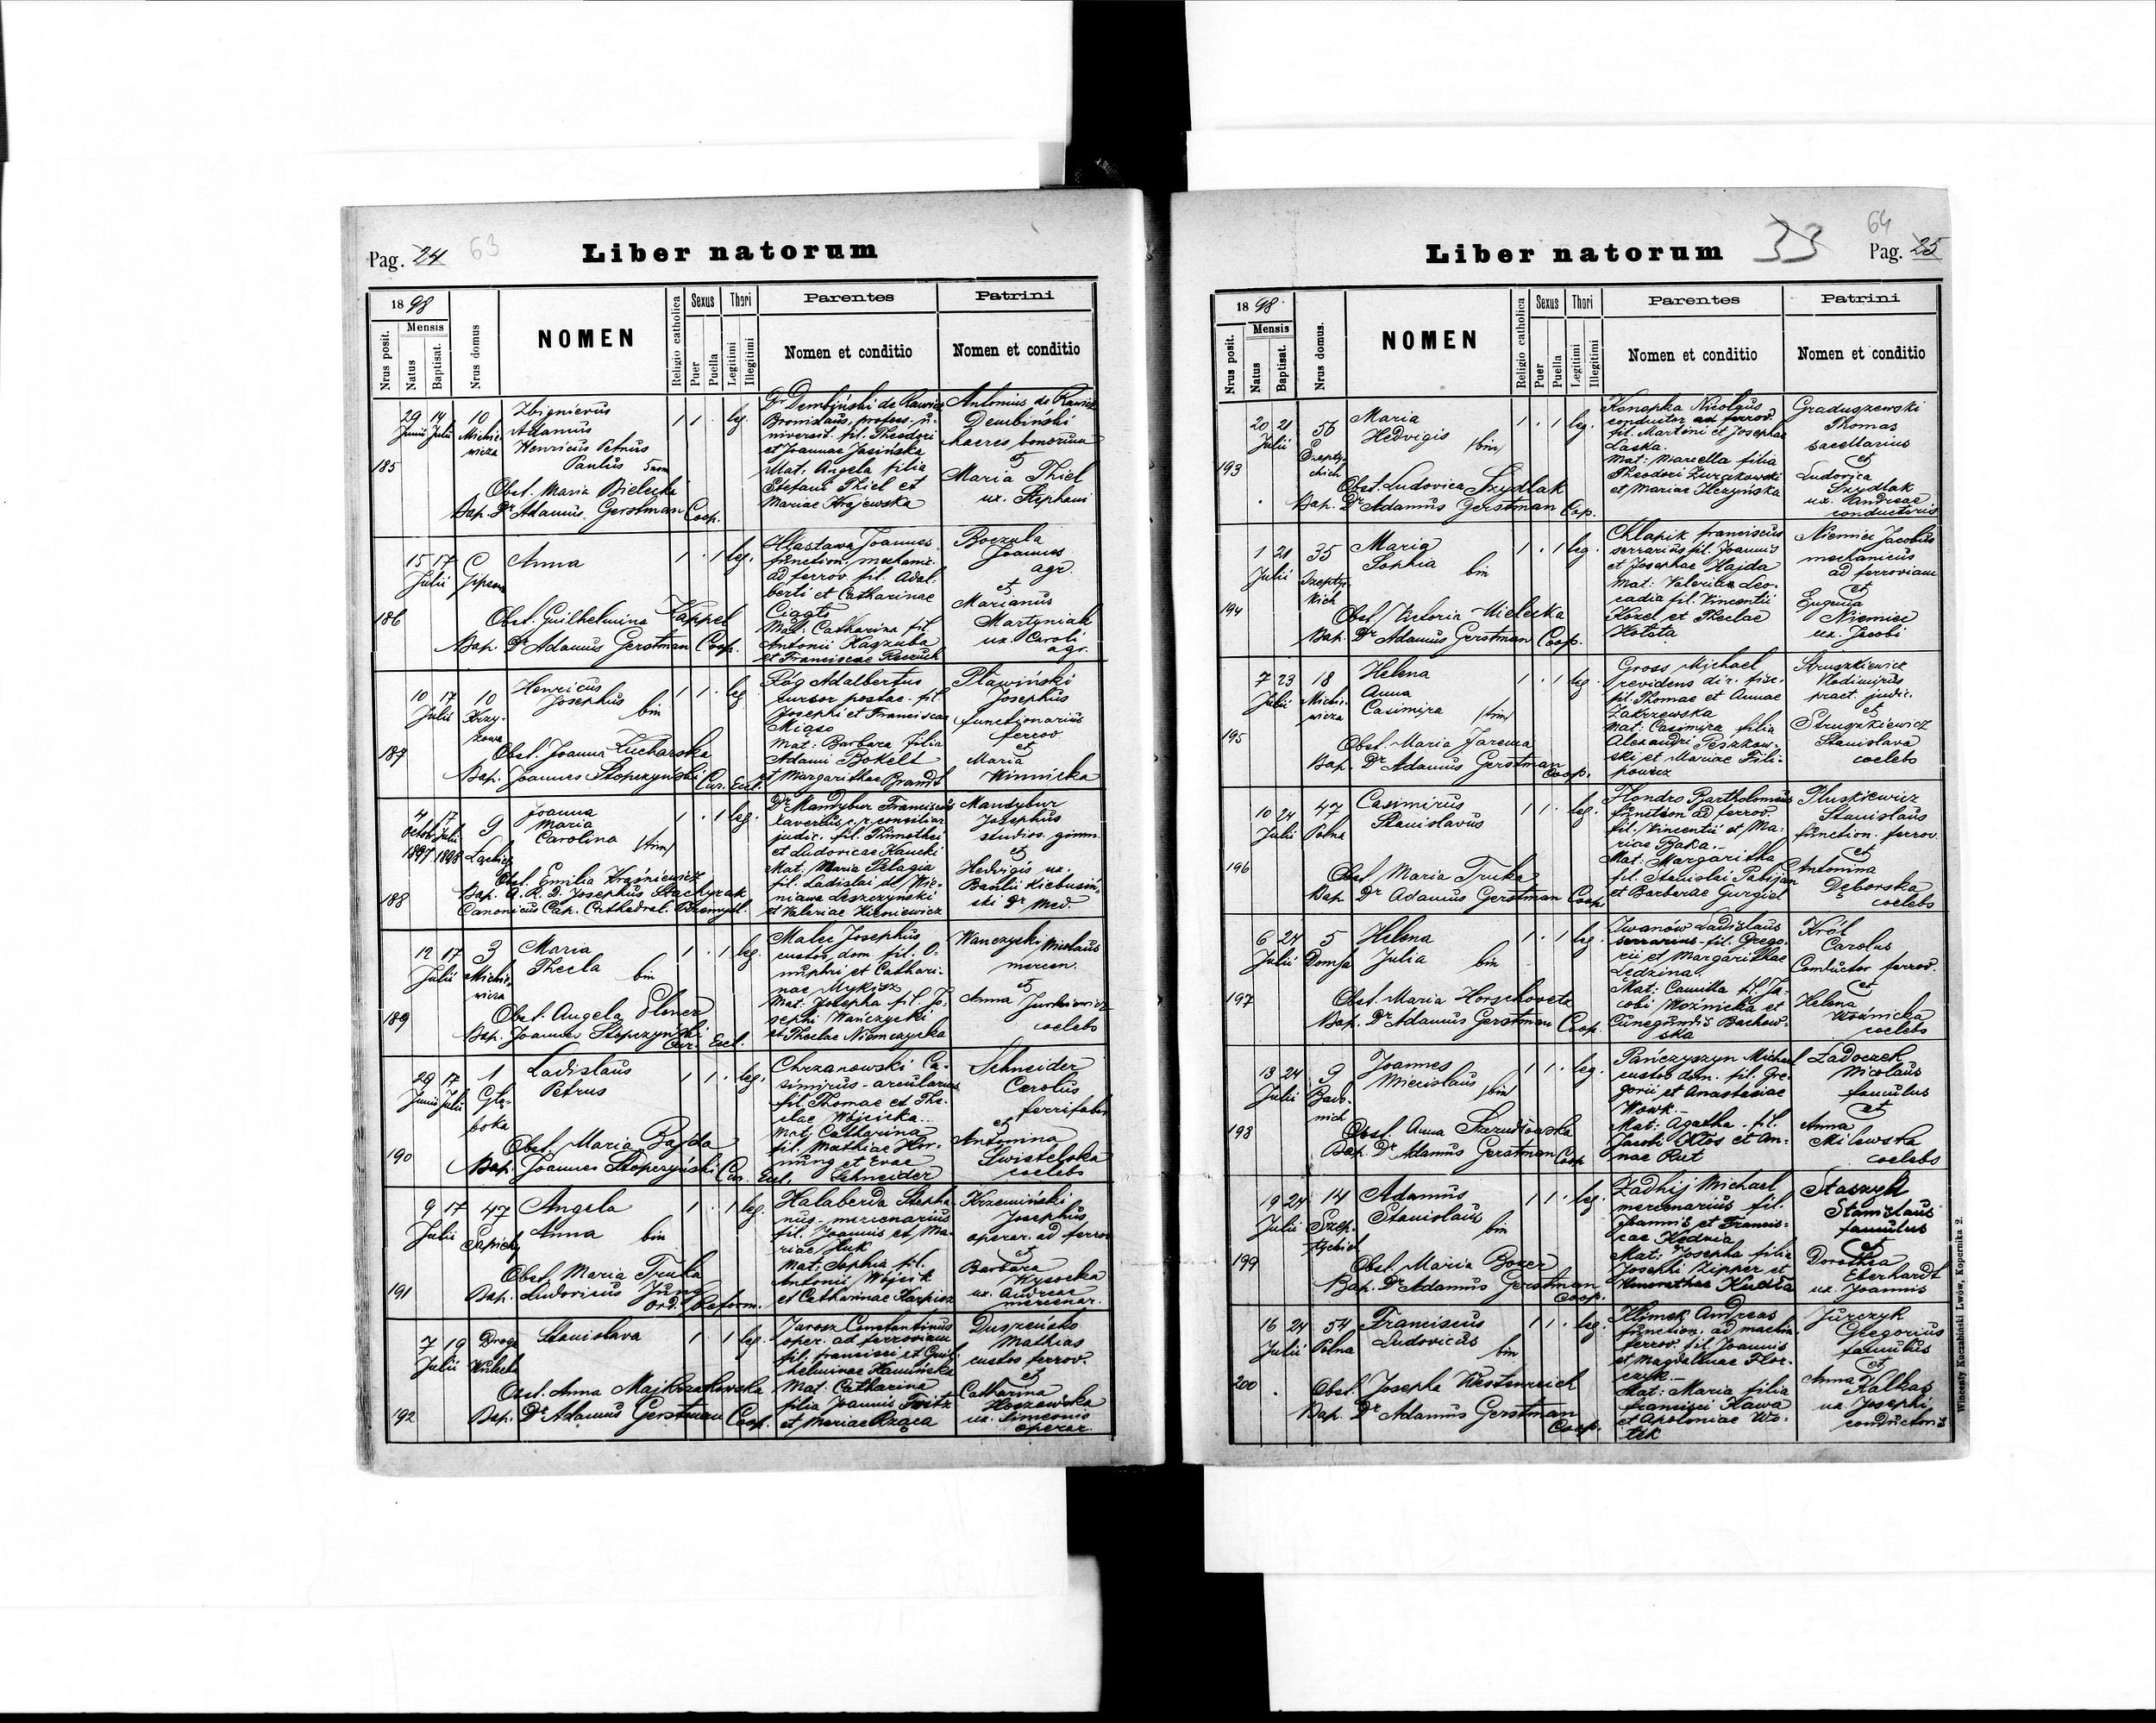 Pag. 24 63 Liber natorum
1898 Nrus domus NOMEN Religio catholica Sexus Thori Parentes Patrini
Nrus posit. Mensis Natus Baptisat. Puer Puella Legitimi Illegitimi Nomen et conditio Nomen et conditio
185
29 14 10
Junii Julii Mickie-
wicza
Zbignievus
Adamus
Henricus Petrus
Paulus 5nom
Obst. Maria Bielecka
Bap. Dr Adamus Gerstman Coop.
1 1 . leg.
Dr Dembiński de Rawicz
Bronislaus, profess. u-
niversit. fil. Theodori
et Joannae Jasińska
Mat: Angela filia
Stefani Thiel et
Mariae Krajewska
Antonius de Rawicz
Dembiński
haeres bonorum
et
Maria Thiel
ux. Stephani
186
15 17 C
Julii
Anna
Obst. Guilhelmina Kappel
Bap. Dr Adamus Gerstman Coop.
1 . 1 leg.
Hlastawa Joannes
function. mechanic.
ad ferrov. fil. Adal-
berti et Catharinae
Mat: Catharina fil.
Antonii Kagzuba
et Franciscae
Boczula
Joannes
agr.
et
Marianus
Martyniak
ux. Caroli
agr.
187
10 17 10
Julii Krzy-
zowa
Henricus
Josephus bin
Obst. Joanna Kucharska
Bap. Joannes Stopczyński Cur. Eccl.
1 1 . leg
Róg Adalbertus
cursor postae. fil.
Josephi et Franciscae
Migas
Mat: Barbara filia
Adami Bokelt
et Margarithae Brandt
Pławiński
Josephus
functionarius
ferrov.
et
Maria
Winnicka
188
4 17 9
Octob. Julii
1897 1898
Joanna
Maria
Carolina /trin/
Obst. Emilia Kraśniewicz
Bap. A. R. D. Josephus Stachyrak
Canonicus Cap. Cathedral. Przemysl.
1 . 1 leg.
Dr Mandybur Franciscus
Xaverius, c. r. consiliar.
judic. fil. Thimothei
et Ludovicae Kaucki
Mat: Maria Pelagia
fil. Ladislai de Wie-
niawa Leszczynski
et Valeriae Kieniewicz
Mandybur
Josephus
studios. gimn.
et
Hedvigis ux.
Basilii Kiebusiń-
ski Dr Med.
189
12 17 3
Julii Mickie-
wicza
Maria
Thecla bin
Obst. Angela Elsner
Bap. Joannes Stopczyński
Cur. Eccl.
1 . 1 leg.
Malec Josephus
custos dom. fil. O-
nuphri et Cathari-
nae Mykisz
Mat: Josepha fil. Jo-
sephi Wańczycki
et Theclae Niemczycka
Wanczycki Nicolaus
mercen.
et
Anna Jurkiewicz
coelebs
190
29 17 1
Junii Julii Głę-
boka
Ladislaus
Petrus
Obst. Maria Bajda
Bap. Joannes Stopczyński Cur. Eccl.
1 1 . leg.
Chrzanowski Ca-
simirus - arcularius
fil. Thomae et The-
clae Wójcicka.
Mat: Catharina
fil. Mathiae Hor-
nung et Evae
Schneider
Schneider
Carolus
ferrifaber
et
Antonina
Świstelska
coelebs
191
9 17 47
Julii Sapiehy
Angela
Anna bin
Obst. Maria Truka
Bap. Ludovicus Jung
O. S. F. Reform.
1 . 1 leg.
Halaberda Stepha-
nus - mercenarius
fil. Joannis et Ma-
riae Huk
Mat: Sophia fil.
Antonii Wójcik
et Catharinae Karpisz
Krzemiński
Josephus
operar. ad ferrov
et
Barbara
Wysocka
ux. Andreae
mercenar.
192
7 19 Droga
Julii Wulecka
Stanislava
Obst. Anna Majkrzakowska
Bap. Dr Adamus Gerstman Coop.
1 . 1 leg.
Jarosz Constantinus
oper. ad ferroviam
fil. Francisci et Guil-
helminae Kamińska
Mat: Catharina
filia Joannis Fritz
et Mariae Rząca
Duszeńcko
Mathias
custos ferrov.
et
Catharina
Hoszowska
ux. Simeonis
operar.
Liber natorum 33 64 Pag. 25
1898 Nrus domus. NOMEN Religio catholica Sexus Thori Parentes Patrini
Nrus posit. Mensis Natus Baptisat. Puer Puella Legitimi Illegitimi Nomen et conditio Nomen et conditio
193
20 21 56
Julii Szepty-
ckich
Maria
Hedvigis /bin/
Obst. Ludovica Szydlak
Bap. Dr Adamus Gerstman Cop.
1 . 1 leg.
Konopka Nicolaus
conductor ad ferrov.
fil. Martini et Josephae
Laska.
Mat: Marcella filia
Theodori Zurakowski
et Mariae Ilczyńska
Graduszewski
Thomas
sacellarius
et
Ludovica
Szydlak
ux. Andreae
conductoris
194
1 21 35
Julii Szepty-
ckich
Maria
Sophia bin
Obst. Victoria Mielecka
Bap. Dr Adamus Gerstman Coop.
1 . 1 leg.
Chlapik Franciscus
serrarius fil. Joannis
et Josephae Hajda
Mat: Valeria Leo-
cadia fil. Vincentii
Kozel et Theclae
Holota
Niemiec Jacobus
mechanicus
ad ferroviam
et
Eugenia
Niemiec
ux. Jacobi
195
7 23 18
Julii Mickie-
wicza
Helena
Anna
Casimira /trin/
Obst. Maria Jarema
Bap. Dr Adamus Gerstman
Coop.
1 . 1 leg.
Gross Michael
revidens dir. fisc.
fil. Thomae et Annae
Zakrzewska
Mat: Casimira filia
Alexandri Peszkow-
ski et Mariae Fili-
powicz
Struszkiewicz
Vlodimirus
pract. judic.
et
Struszkiewicz
Stanislava
coelebs
196
10 24 47
Julii Polna
Casimirus
Stanislavus
Obst. Maria Truka
Bap. Dr Adamus Gerstman Coop
1 1 . leg.
Hondro Bartholomeus
function ad ferrov.
fil. Vincentii et Ma-
riae Baka.-
Mat: Margaritha
fil. Stanislai Patsjan
et Barbarae Gurgiel
Pluskiewicz
Stanislaus
function. ferrov.
et
Antonina
Dęborska
coelebs
197
6 24 5
Julii Domsa
Helena
Julia bin
Obst. Maria Horschovetz
Bap. Dr Adamus Gerstman Coop.
1 . 1 leg.
Iwanów Ladislaus
serrarius - fil. Grego-
rii et Margarithae
Ledzina.
Mat: Camilla fil. Ja-
cobi Woźnicka et
Cunegundis Bachow-
ska
Król
Carolus
Conductor ferrov.
et
Helena
Woźnicka
coelebs
198
13 24 9
Julii
Joannes
Miecislaus /bin/
Obst. Anna
Bap. Dr Adamus Gerstman Coop
1 1 . leg.
Pańczyszyn Michael
custos dom. fil. Gre-
gorii et Anastasiae
Wowk.-
Mat: Agatha - fil.
Jacobi Kłos et An-
nae Rut
Ladoczek
Nicolaus
famulus
et
Anna
Milewska
coelebs
199
19 24 14
Julii Szep-
tyckich
Adamus
Stanislaus bin
Obst. Maria Bozer
Bap. Dr Adamus Gerstman
Coop.
1 1 . leg.
Zadhij Michael
mercenarius fil.
Joannis et Francis-
cae Kednia
Mat: Josepha filia
Josephi Zipper et
Kudła
Staszyk
Stanislaus
famulus
et
Dorothea
Eberhardt
ux. Joannis
200
16 24 54
Julii Polna
Franciscus
Ludovicus bin
Obst. Josepha Westenreich
Bap. Dr Adamus Gerstman
Coop.
1 1 . leg.
Klimek Andreas
function. ad machin.
ferrov. fil. Joannis
et Magdalenae Flor-
czyk -
Mat: Maria filia
Francisci Kawa
et Apoloniae Wo-
tek
Jurczyk
Gregorius
famulus
et
Anna Kalkas
ux. Josephi
conductoris
Wincenty Kuczabiński Lwów, Kopernika 2.